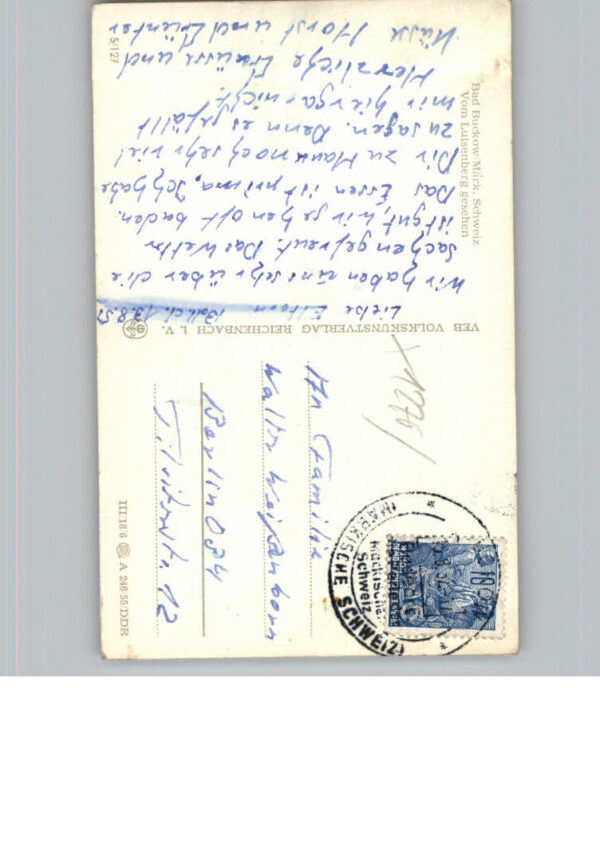 Liebe Eltern
13.8.57
Wir haben uns sehr über die
Sachen gefreut. Das Wetter
ist gut, wir gehen oft baden.
Das Essen ist prima, Ich habe
Dir zu Mann noch sehr viel
zu sagen. Denn es gefällt
mir hier gar nicht.
Herzliche Grüsse und
Küsse Horst und Günter
5/127
Bad Buckow/Märk. Schweiz
Vom Luisenberg gesehen
VEB VOLKSKUNSTVERLAG REICHENBACH I. V.
1276/
An Familie
Walter Weißenborn
Berlin O34
Tilsiterstr. 12
III/18/6 A 246/55/DDR
(MÄRKISCHE SCHWEIZ)
Märkische
Schweiz
10